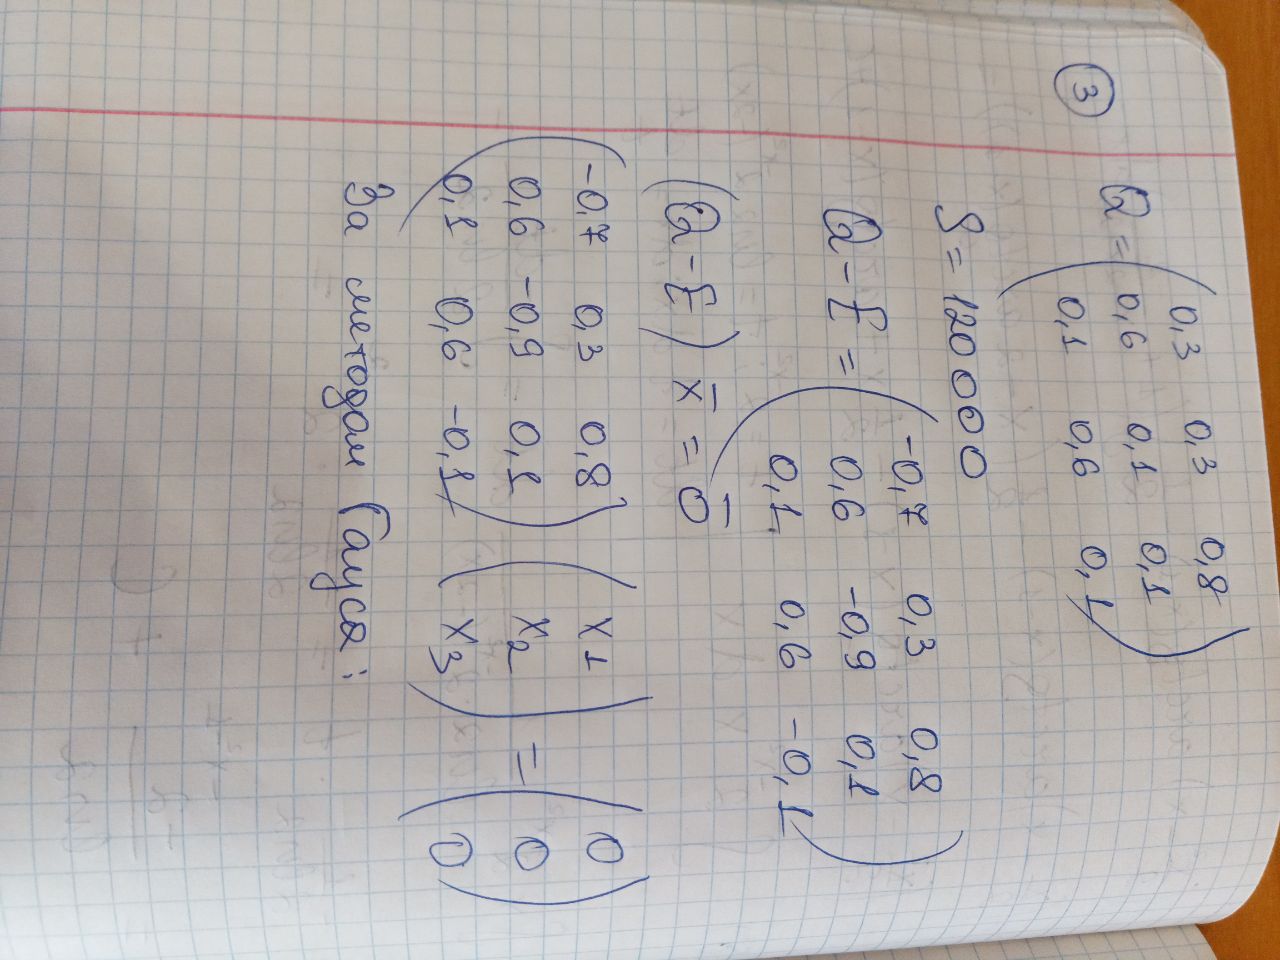 3
Q = ( 0,3 0,3 0,8
0,6 0,1 0,1
0,1 0,6 0,1 )
S = 120000
Q - E = ( -0,7 0,3 0,8
0,6 -0,9 0,1
0,1 0,6 -0,1 )
(Q - E) x̄ = ō
( -0,7 0,3 0,8 ) ( x1 ) = ( 0 )
( 0,6 -0,9 0,1 ) ( x2 ) = ( 0 )
( 0,1 0,6 -0,1 ) ( x3 ) = ( 0 )
За методом Гауса: